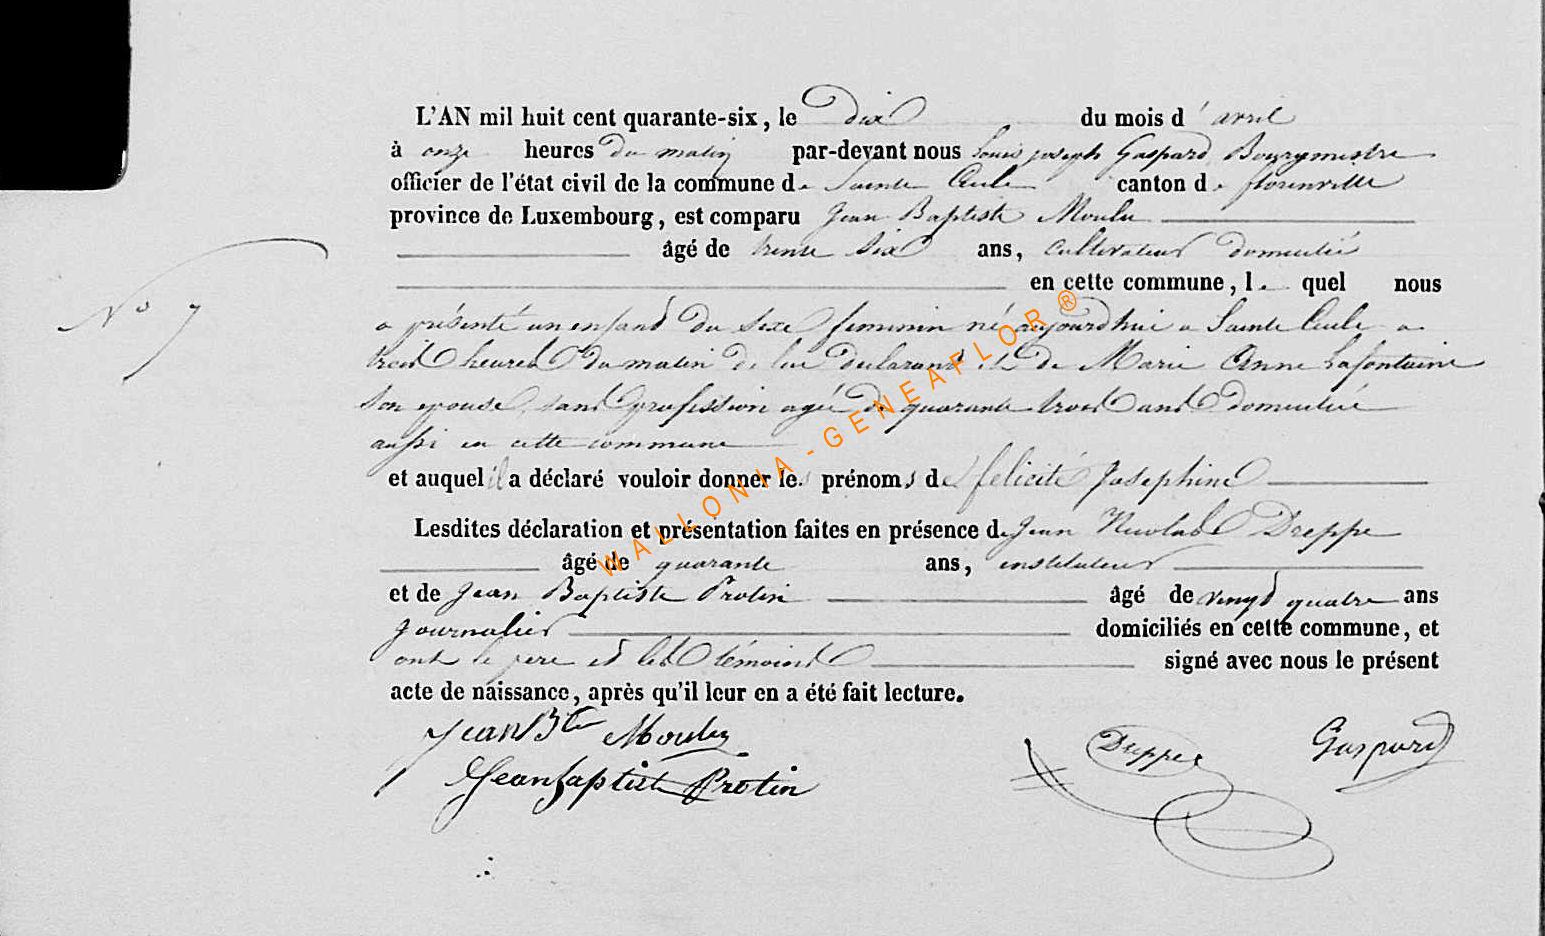 L'AN mil huit cent quarante-six, le dix du mois d'avril
à onze heures du matin par-devant nous Louis joseph Gaspard Bourgmestre
officier de l'état civil de la commune de Sainte Cecile canton de florenville
province de Luxembourg, est comparu Jean Baptiste Moulu
âgé de trente six ans, cultivateur domicilié
en cette commune, le quel nous
N° 7
a présenté un enfant du sexe feminin né aujourdhui a Sainte Cecile a
trois heures du matin de lui declarant et de Marie Anne Lafontaine
son epouse, sans profession agée de quarante trois ans domiciliée
aussi en cette commune
et auquel il a déclaré vouloir donner les prénoms de felicité Josephine
Lesdites déclaration et présentation faites en présence de Jean Nicolas Dreppe
âgé de quarante ans, instituteur
et de Jean Baptiste Protin âgé de vingt quatre ans
Journalier domiciliés en cette commune, et
ont le pere et les témoins signé avec nous le présent
acte de naissance, après qu'il leur en a été fait lecture.
Jean Bte Moulu
Dreppe
Gaspard
Jean baptiste Protin
WALLONIA - GENEAFLOR ®